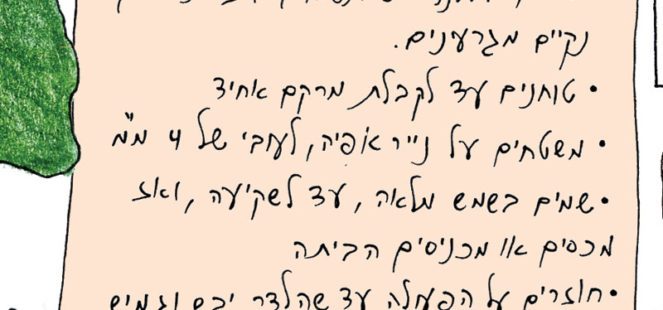 נקיים מגרעינים.
• טוחנים עד לקבלת מרקם אחיד
• משטחים על נייר אפיה, לעובי של 4 מ"מ
• שמים בשמש מלאה, עד לשקיעה, ואז
מכסים או מכניסים הביתה
• חוזרים על הפעולה עד שהלדר יבש וגמיש